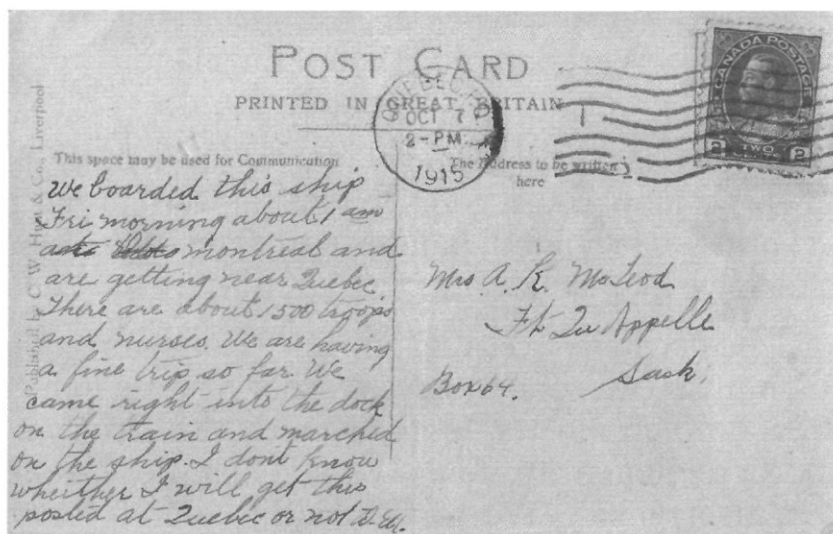 POST CARD
PRINTED IN GREAT BRITAIN
QUEBEC
OCT 7
2-PM
1915
CANADA POSTAGE
2 TWO 2
Published by C. W. Hunt & Co., Liverpool
This space may be used for Communication
The Address to be written
here
We boarded this ship
Fri morning about 1 am
montreal and
are getting near Quebec
There are about 1500 troops
and nurses. We are having
a fine trip so far. We
came right into the dock
on the train and marched
on the ship. I dont know
wheither I will get this
posted at Quebec or not
Mrs A. K. McLeod
Ft Qu Appelle
Box 64. Sask.